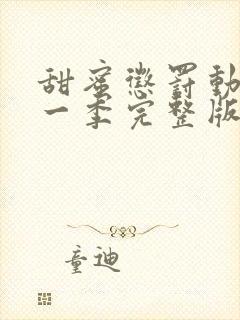 甜蜜懲罰動
一季完整版
童迪